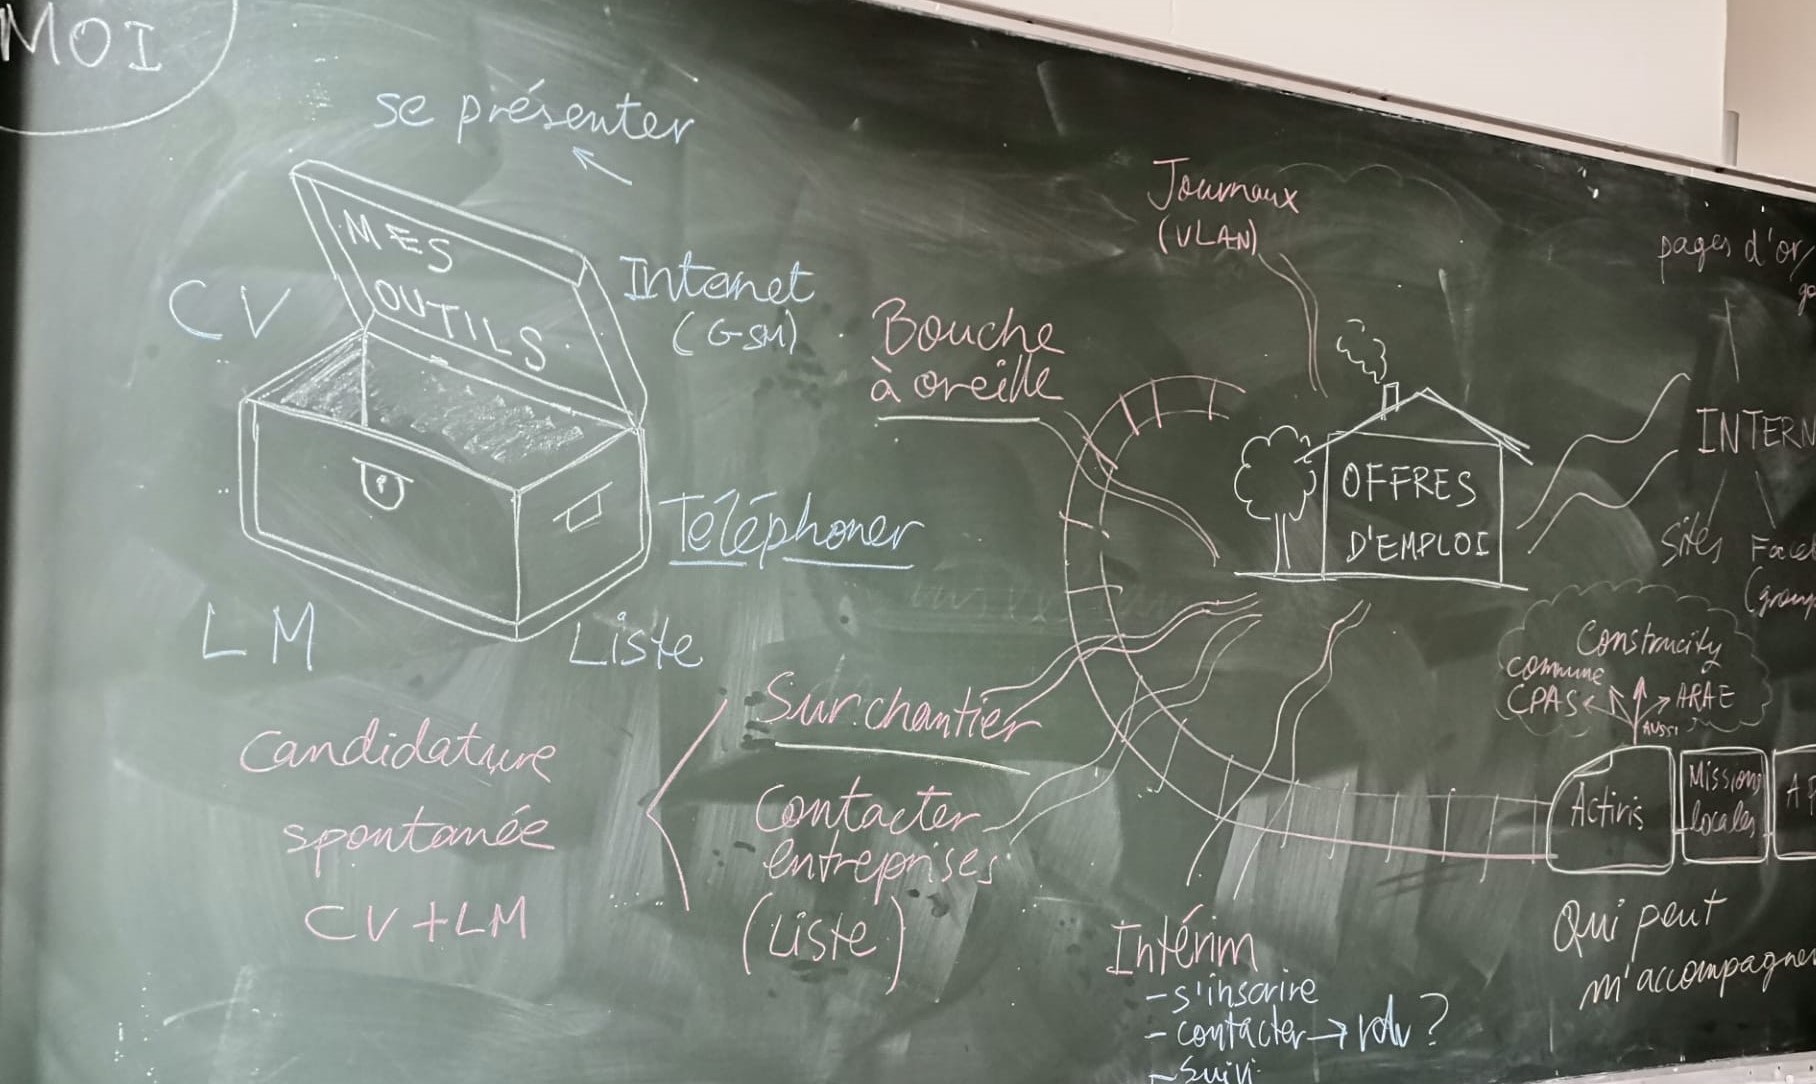 MOI
se présenter
MES
OUTILS
CV
Internet
(GSM)
Téléphoner
LM
Liste
Candidature
spontanée
CV+LM
Sur chantier
Contacter
entreprises
(Liste)
Bouche
à oreille
Journaux
(VLAN)
OFFRES
D'EMPLOI
pages d'or/
go
INTERN
sites
Face
(group
Construcity
commune
CPAS
ARAE
AUSSI
Actiris
Missions
Locales
Qui peut
m'accompagner
Intérim
- s'inscrire
- contacter → rdv ?
- Suivi